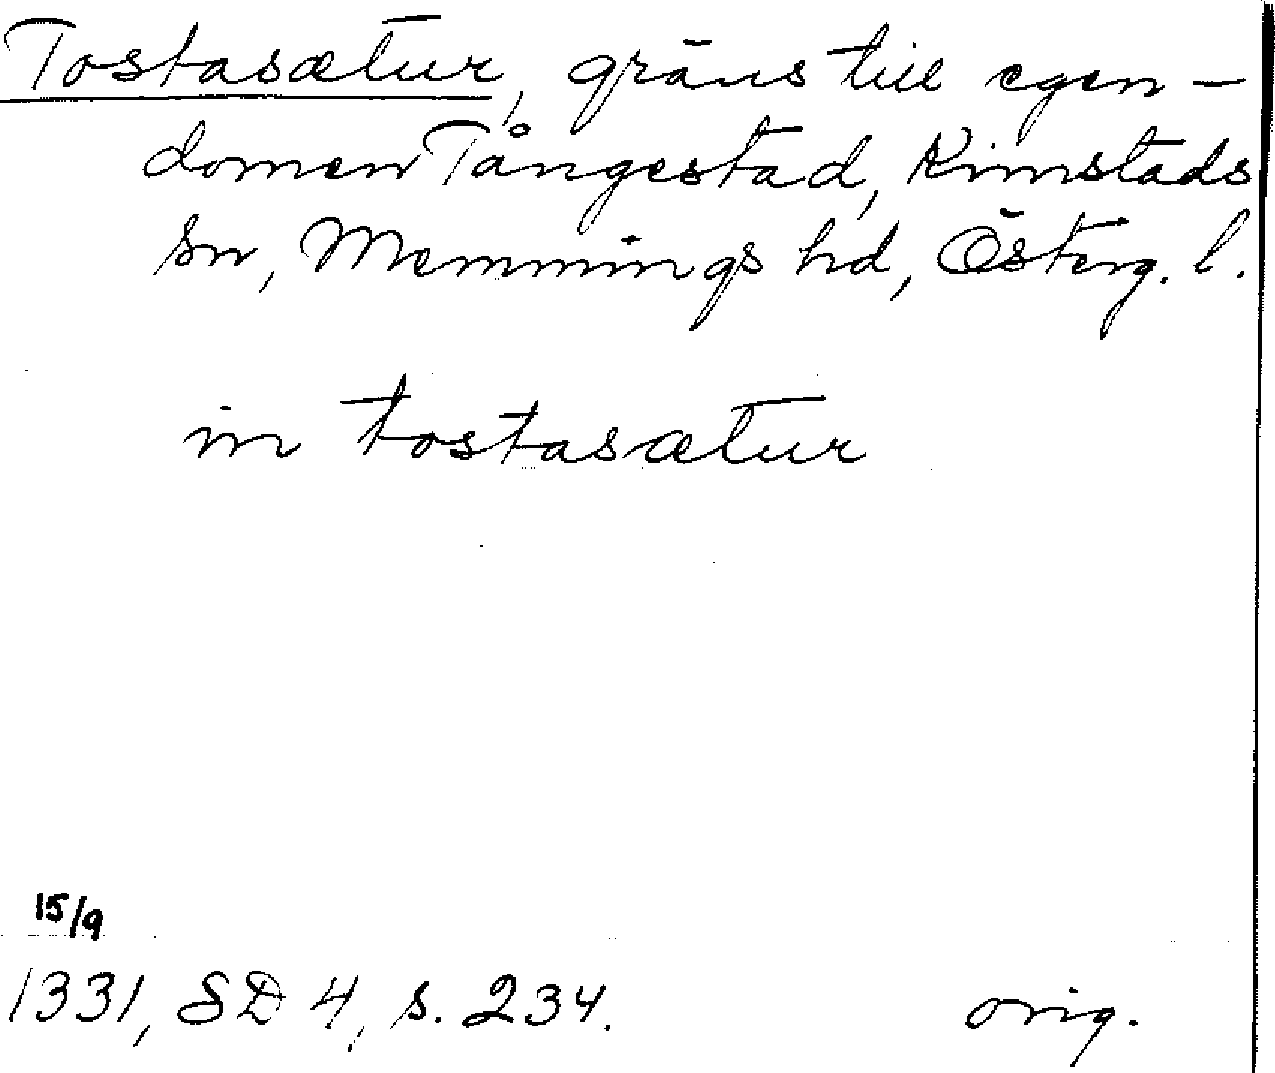 Tostasætur, gräns till egen-
domen Tångestad, Kimstads
sn, Memmings hd, Österg. l.
in tostasætur
15/9
1331, SD 4, s. 234. orig.